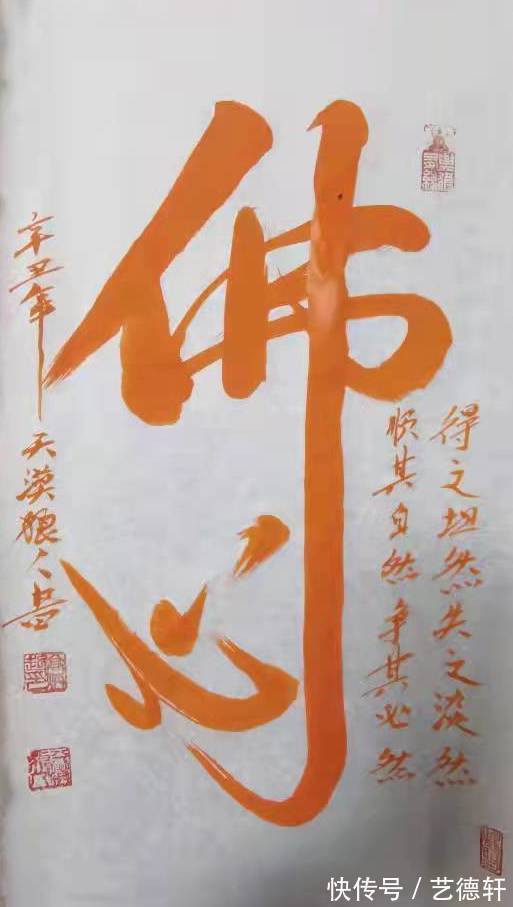 佛心
得之坦然失之淡然
顺其自然争其必然
辛丑年
天漠狼人书
快传号/艺德轩